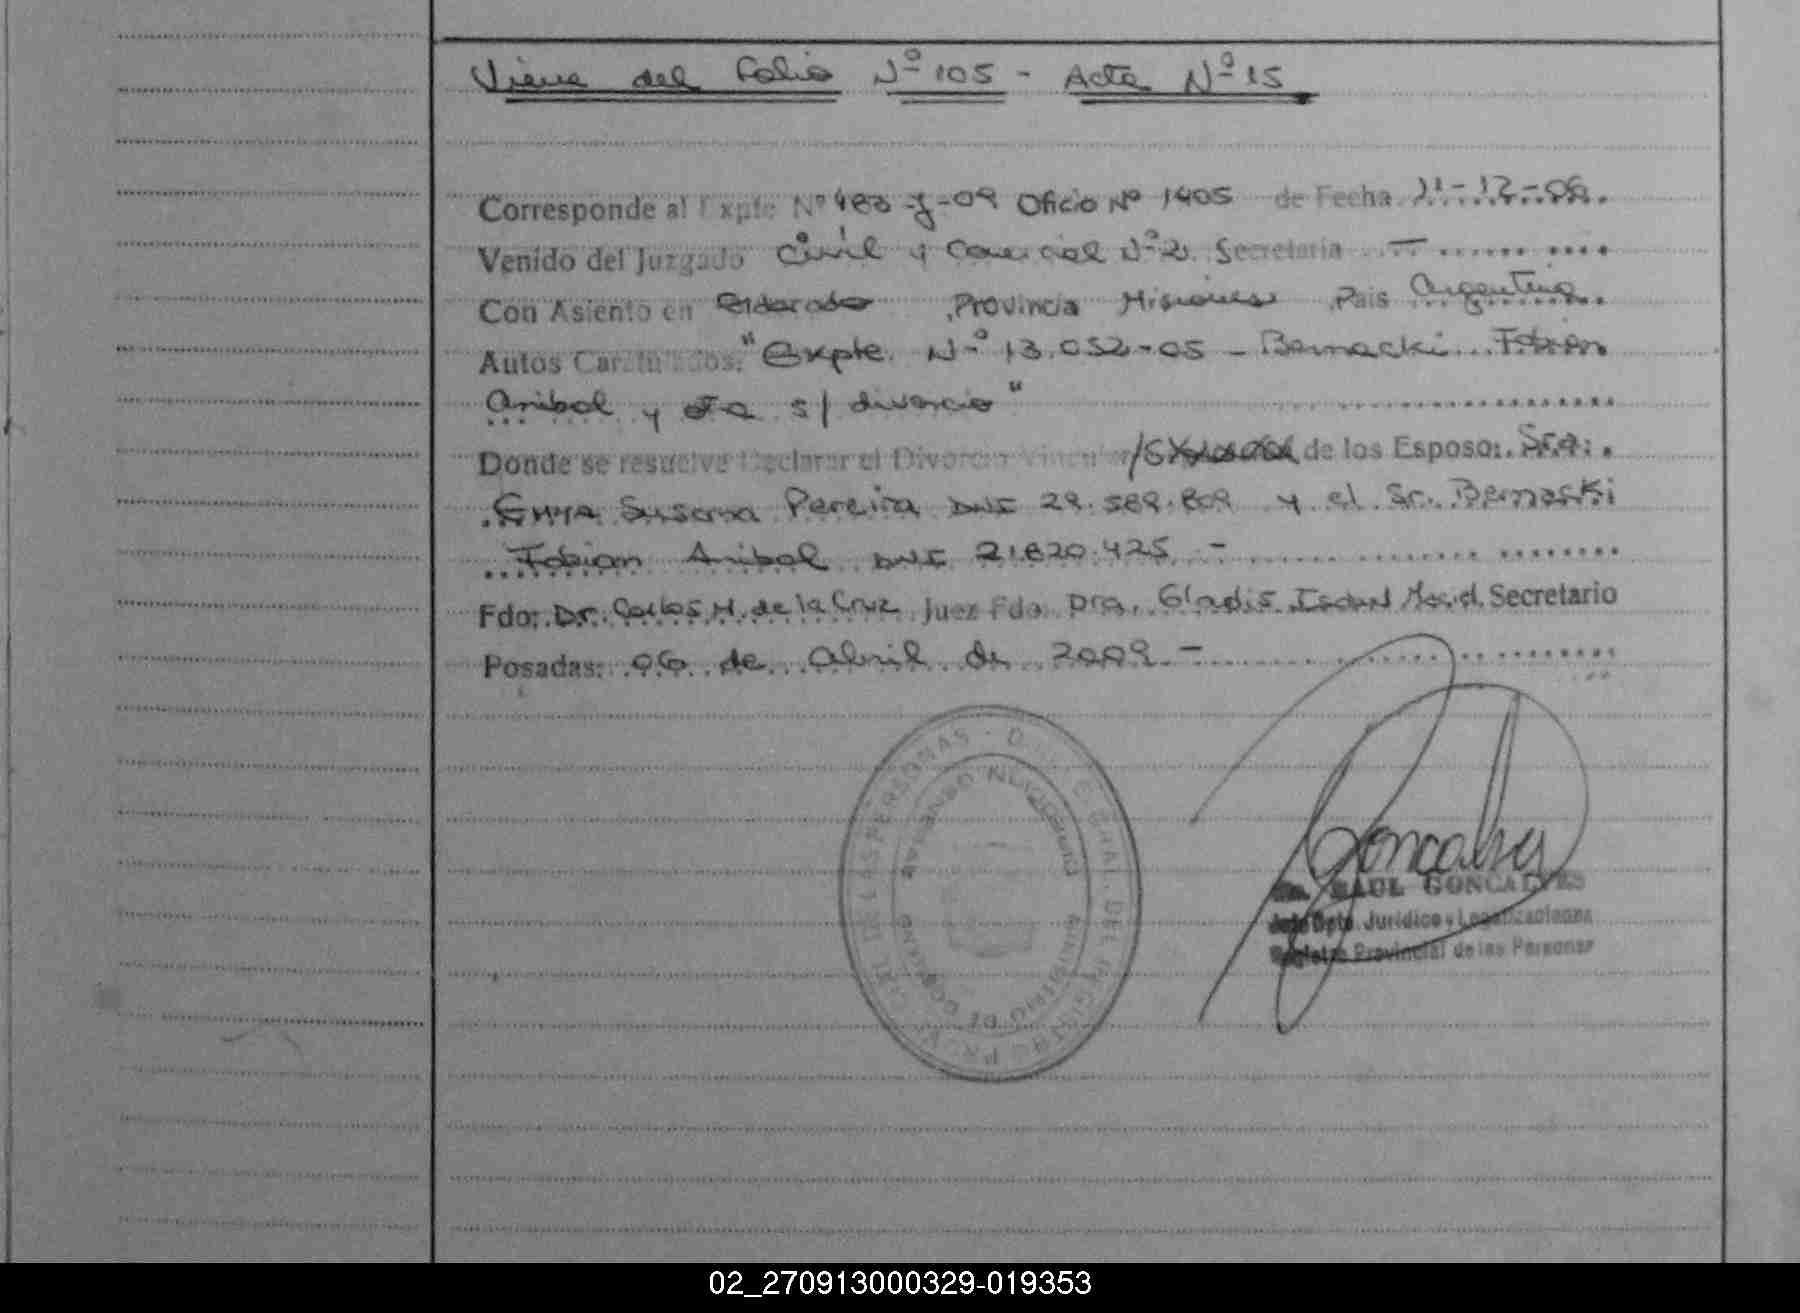 Viene del Folio Nº 105 - Acta Nº 15
Corresponde al Expte Nº 483-J-09 Oficio Nº 1405 de Fecha 11-12-06.
Venido del Juzgado Civil y Comercial Nº 2. Secretaria —
Con Asiento en Eldorado ,Provincia Misiones ,Pais Argentina
Autos Caratulados: "Expte. Nº 13.052-05 - Bernaski Fabian
Anibal y otra s/ divorcio"
Donde se resuelve Declarar el Divorcio Vincular de los Esposo: Sra.
Susana Pereira DNI 29.589.809 y el Sr. Bernaski
Fabian Anibal DNI 21.820.425 -
Fdo: Dr. Carlos M. de la Cruz Juez Fdo: Dra. Gladis Secretario
Posadas: 06 de Abril de 2009 -
DE LAS PERSONAS - DIR. GENERAL DEL REGISTRO PROVINCIAL
MINISTERIO DE GOBIERNO
Goncalves
RAUL GONCALVES
Jefe Dpto. Juridico y Legalizaciones
Registro Provincial de las Personas
02_270913000329-019353